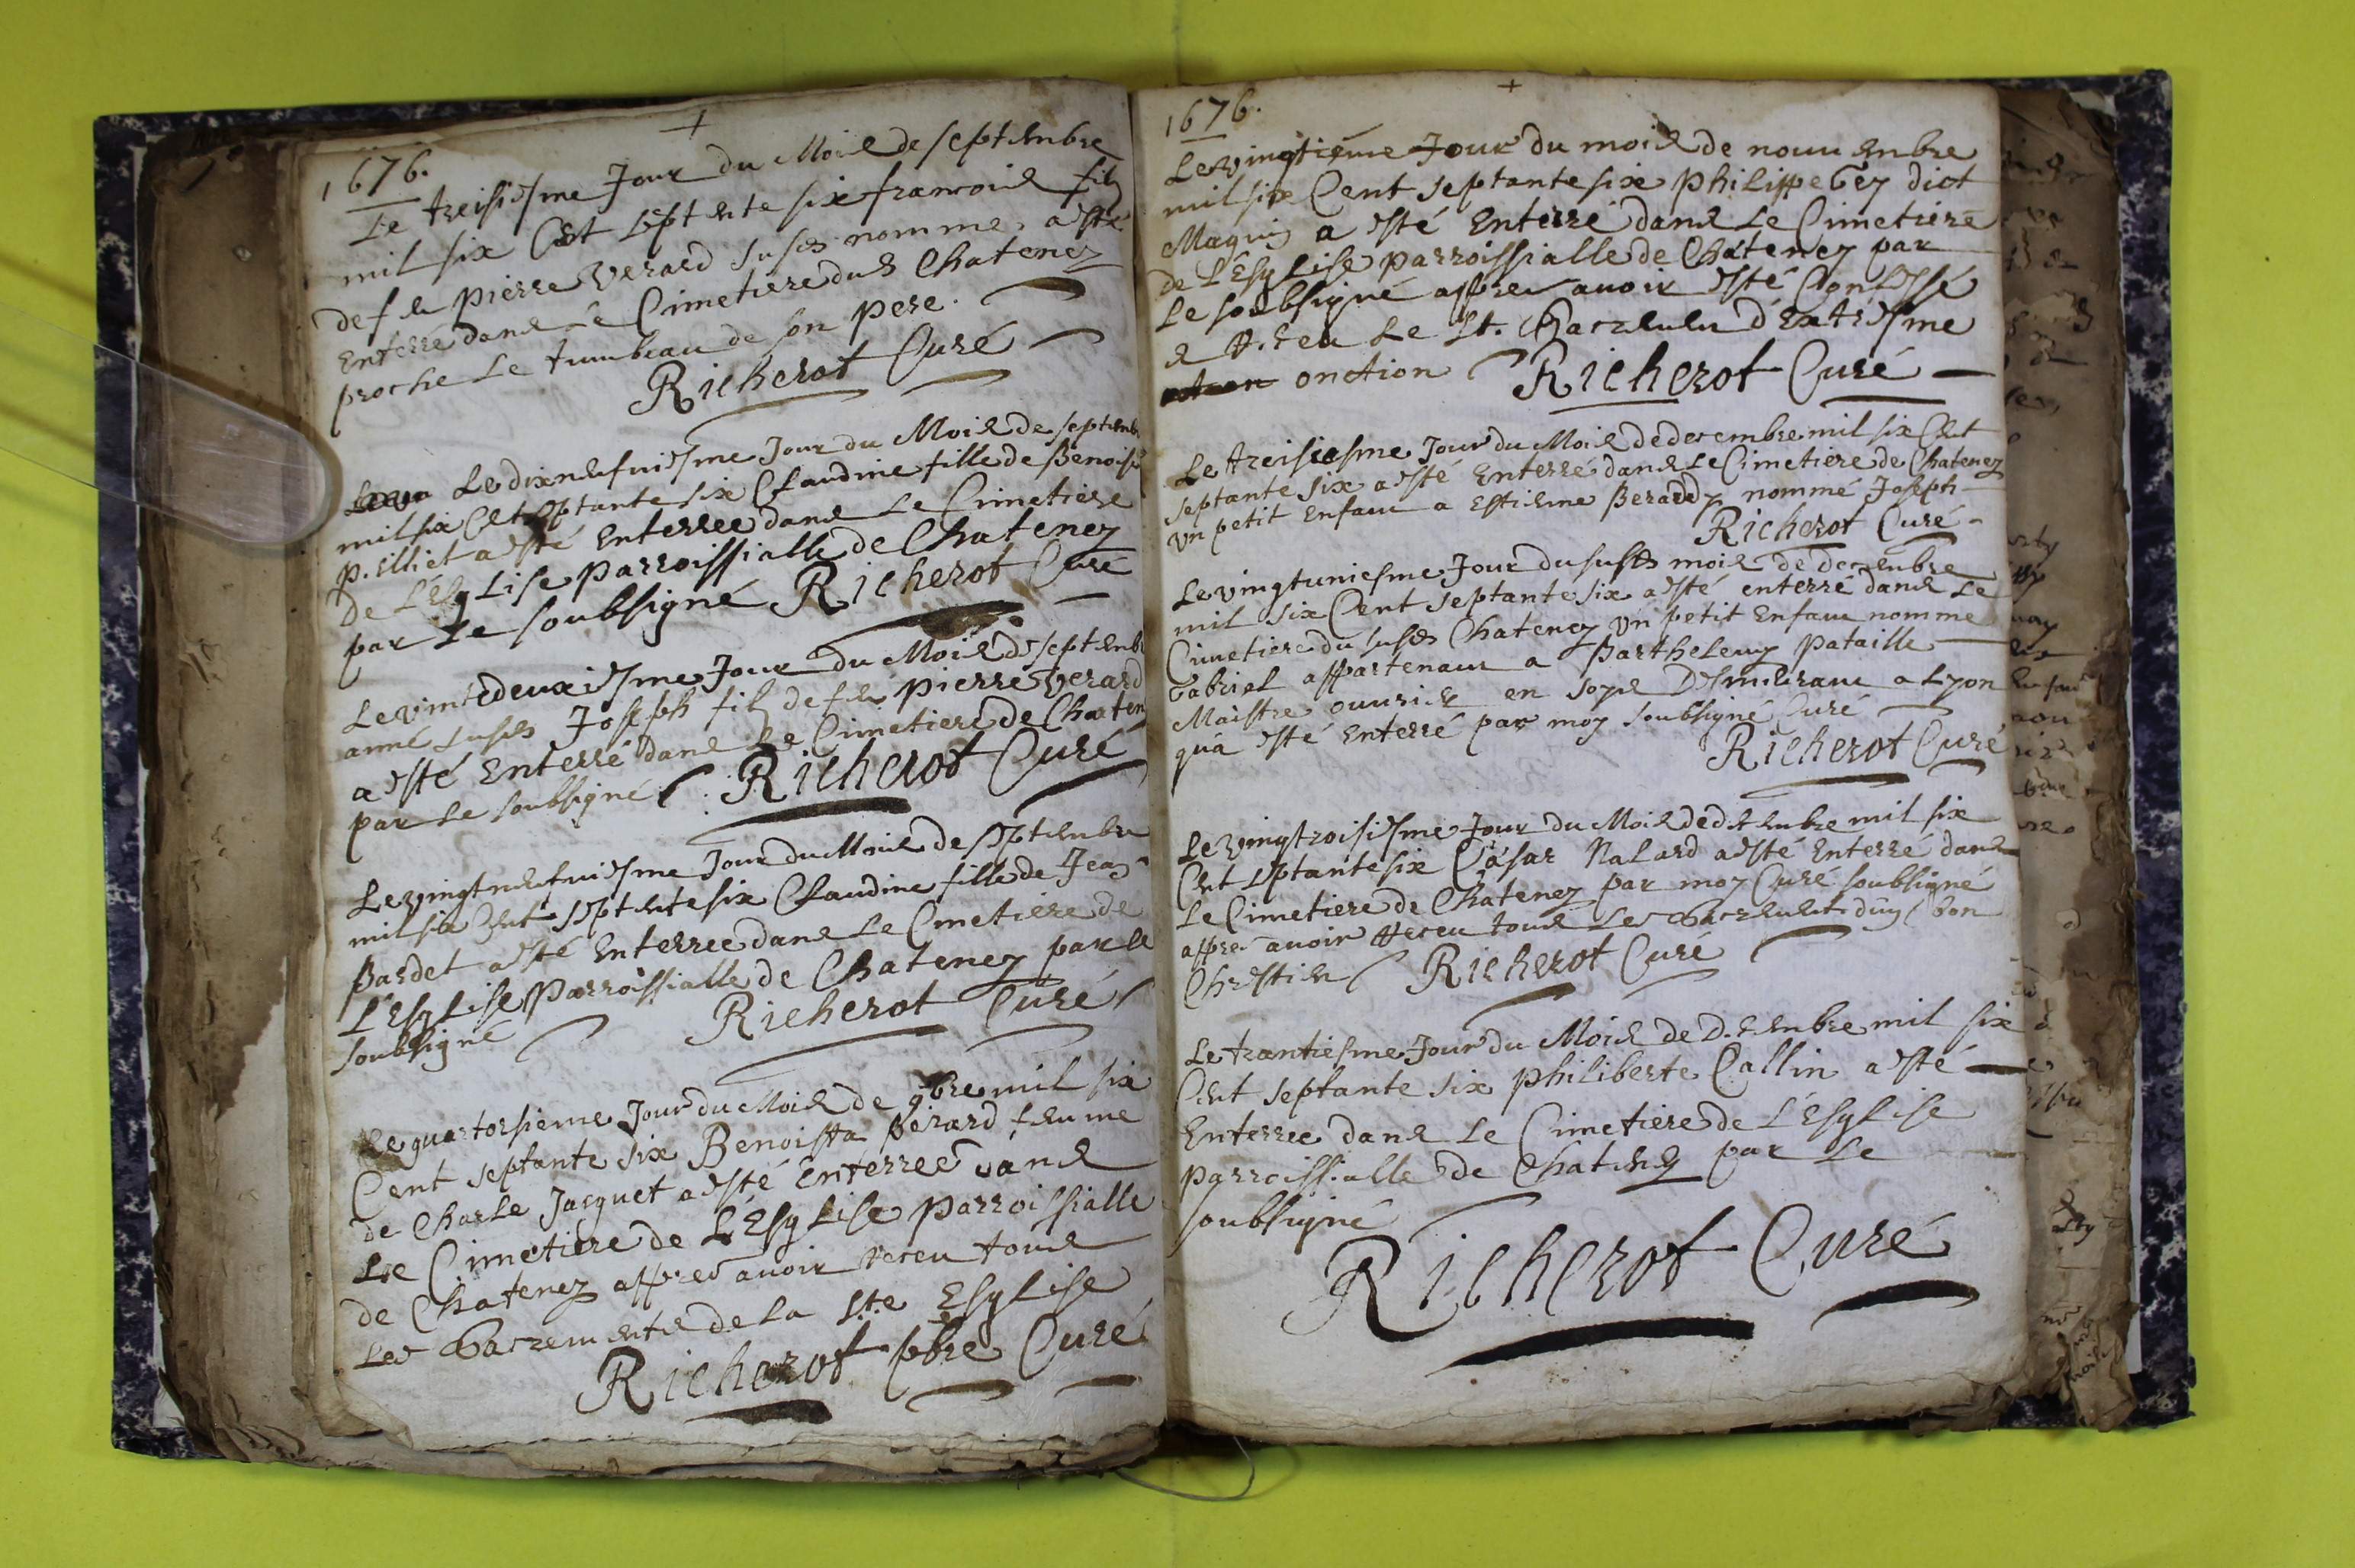 +
1676.
Le treisiesme Jour du Mois de septembre
mil six Cent septente six francois fils
de feu pierre Verard susd nommé, a esté
Enterré dans Le Cimetiere dud Chatenez
proche Le tumbeau de son pere.
Richerot Curé
Le dixneufuiesme Jour du Mois de septemb
mil six Cent septante six Claudine fille de Benoist
pilliet a esté Enterree dans Le Cimetiere
De L'ésglise parroissialle de Chatenez
par Le soubsigné Richerot Curé
Le vintedeuxiesme Jour du Mois de septemb
anné susd Joseph fils de feu pierre Verard
a esté Enterré dans Le Cimetiere de Chaten
par Le soubsigné Richerot Curé
Le vingtneufuiesme Jour du Mois de septembre
mil six Cent septente six Claudine fille de Jean
Bardet a esté Enterree dans Le Cimetiere de
L'Esglise Parroissialle de Chatenez par Le
soubsigné Richerot Curé
Le quatorsieme Jour du Mois de 9bre mil six
Cent septante six Benoista Berard femme
de Charle Jacquet a esté Enterreé dans
Le Cimetiere de L'Esglise parroissialle
de Chatenez appres auoir receu tous
Les Sacrements de La Ste Esglise
Richerot pbre Curé
+
1676.
Le vingtiéme Jour du mois de nouuenbre
mil six Cent septante six philippe Géy dict
Magnin a esté Enterré dans Le Cimetiere
de L'Esglise parroissialle de Chatenez par
Le soubsigné appres auoir esté Confessé
& receu Le St. Sacremen d'Extresme
onction Richerot Curé
Le treisiesme Jour du Mois de decembre mil six Cent
septante six a esté Enterré dans Le Cimetiere de Chatenez
un petit Enfant a Estienne Berard nommé Joseph
Richerot Curé
Le vingtuniesme Jour du susd mois de decenbre
mil six Cent septante six a esté enterré dans Le
Cimetiere du susd Chatenez un petit Enfant nommé
Gabriel appartenant a Barthelemy Pataille
Maistre ouurier en soye Demeurant a Lyon
qu'a esté Enterré par moy soubsigné Curé
Richerot Curé
Le vingtroisiesme Jour du Mois de decembre mil six
Cent septante six Cásar Nalard a esté Enterré dans
Le Cimetiere de Chatenez par moy Curé soubsigné
appres auoir receu tous Les Sacrements d'un bon
Chrestien Richerot Curé
Le trantiesme Jour du Mois de Decenbre mil six
Cent septante six philiberte Callin a esté
Enterree dans Le Cimetiere de L'Esglise
parroissialle de Chatenez par Le
soubsigné
Richerot Curé